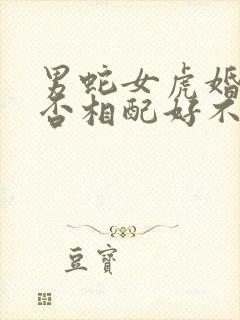 男蛇女虎婚
否相配好不
豆寶